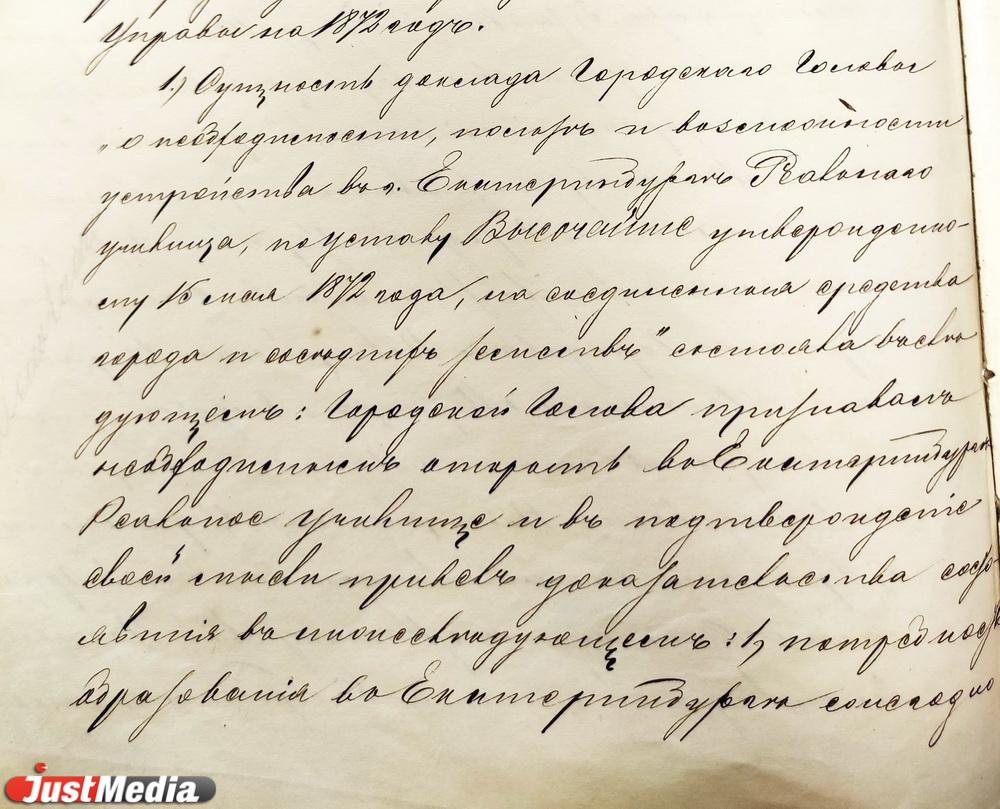 Управы на 1872 годъ.
1.) Сущность доклада Городскаго Головы
„о необходимости, пользѣ и возможности
устройства въ г. Екатеринбургѣ Реальнаго
училища, по уставу Высочайше утвержденно-
му 15 мая 1872 года, на соединенныя средства
города и соседнихъ земствъ" состояла въ слѣ
дующемъ: Городской Голова признавалъ
необходимымъ открыть въ Екатеринбургѣ
Реальное училище и въ подтвержденіе
своей мысли привелъ доказательства
въ нижеслѣдующемъ: 1, потребность
образованія въ Екатеринбургѣ
JustMedia